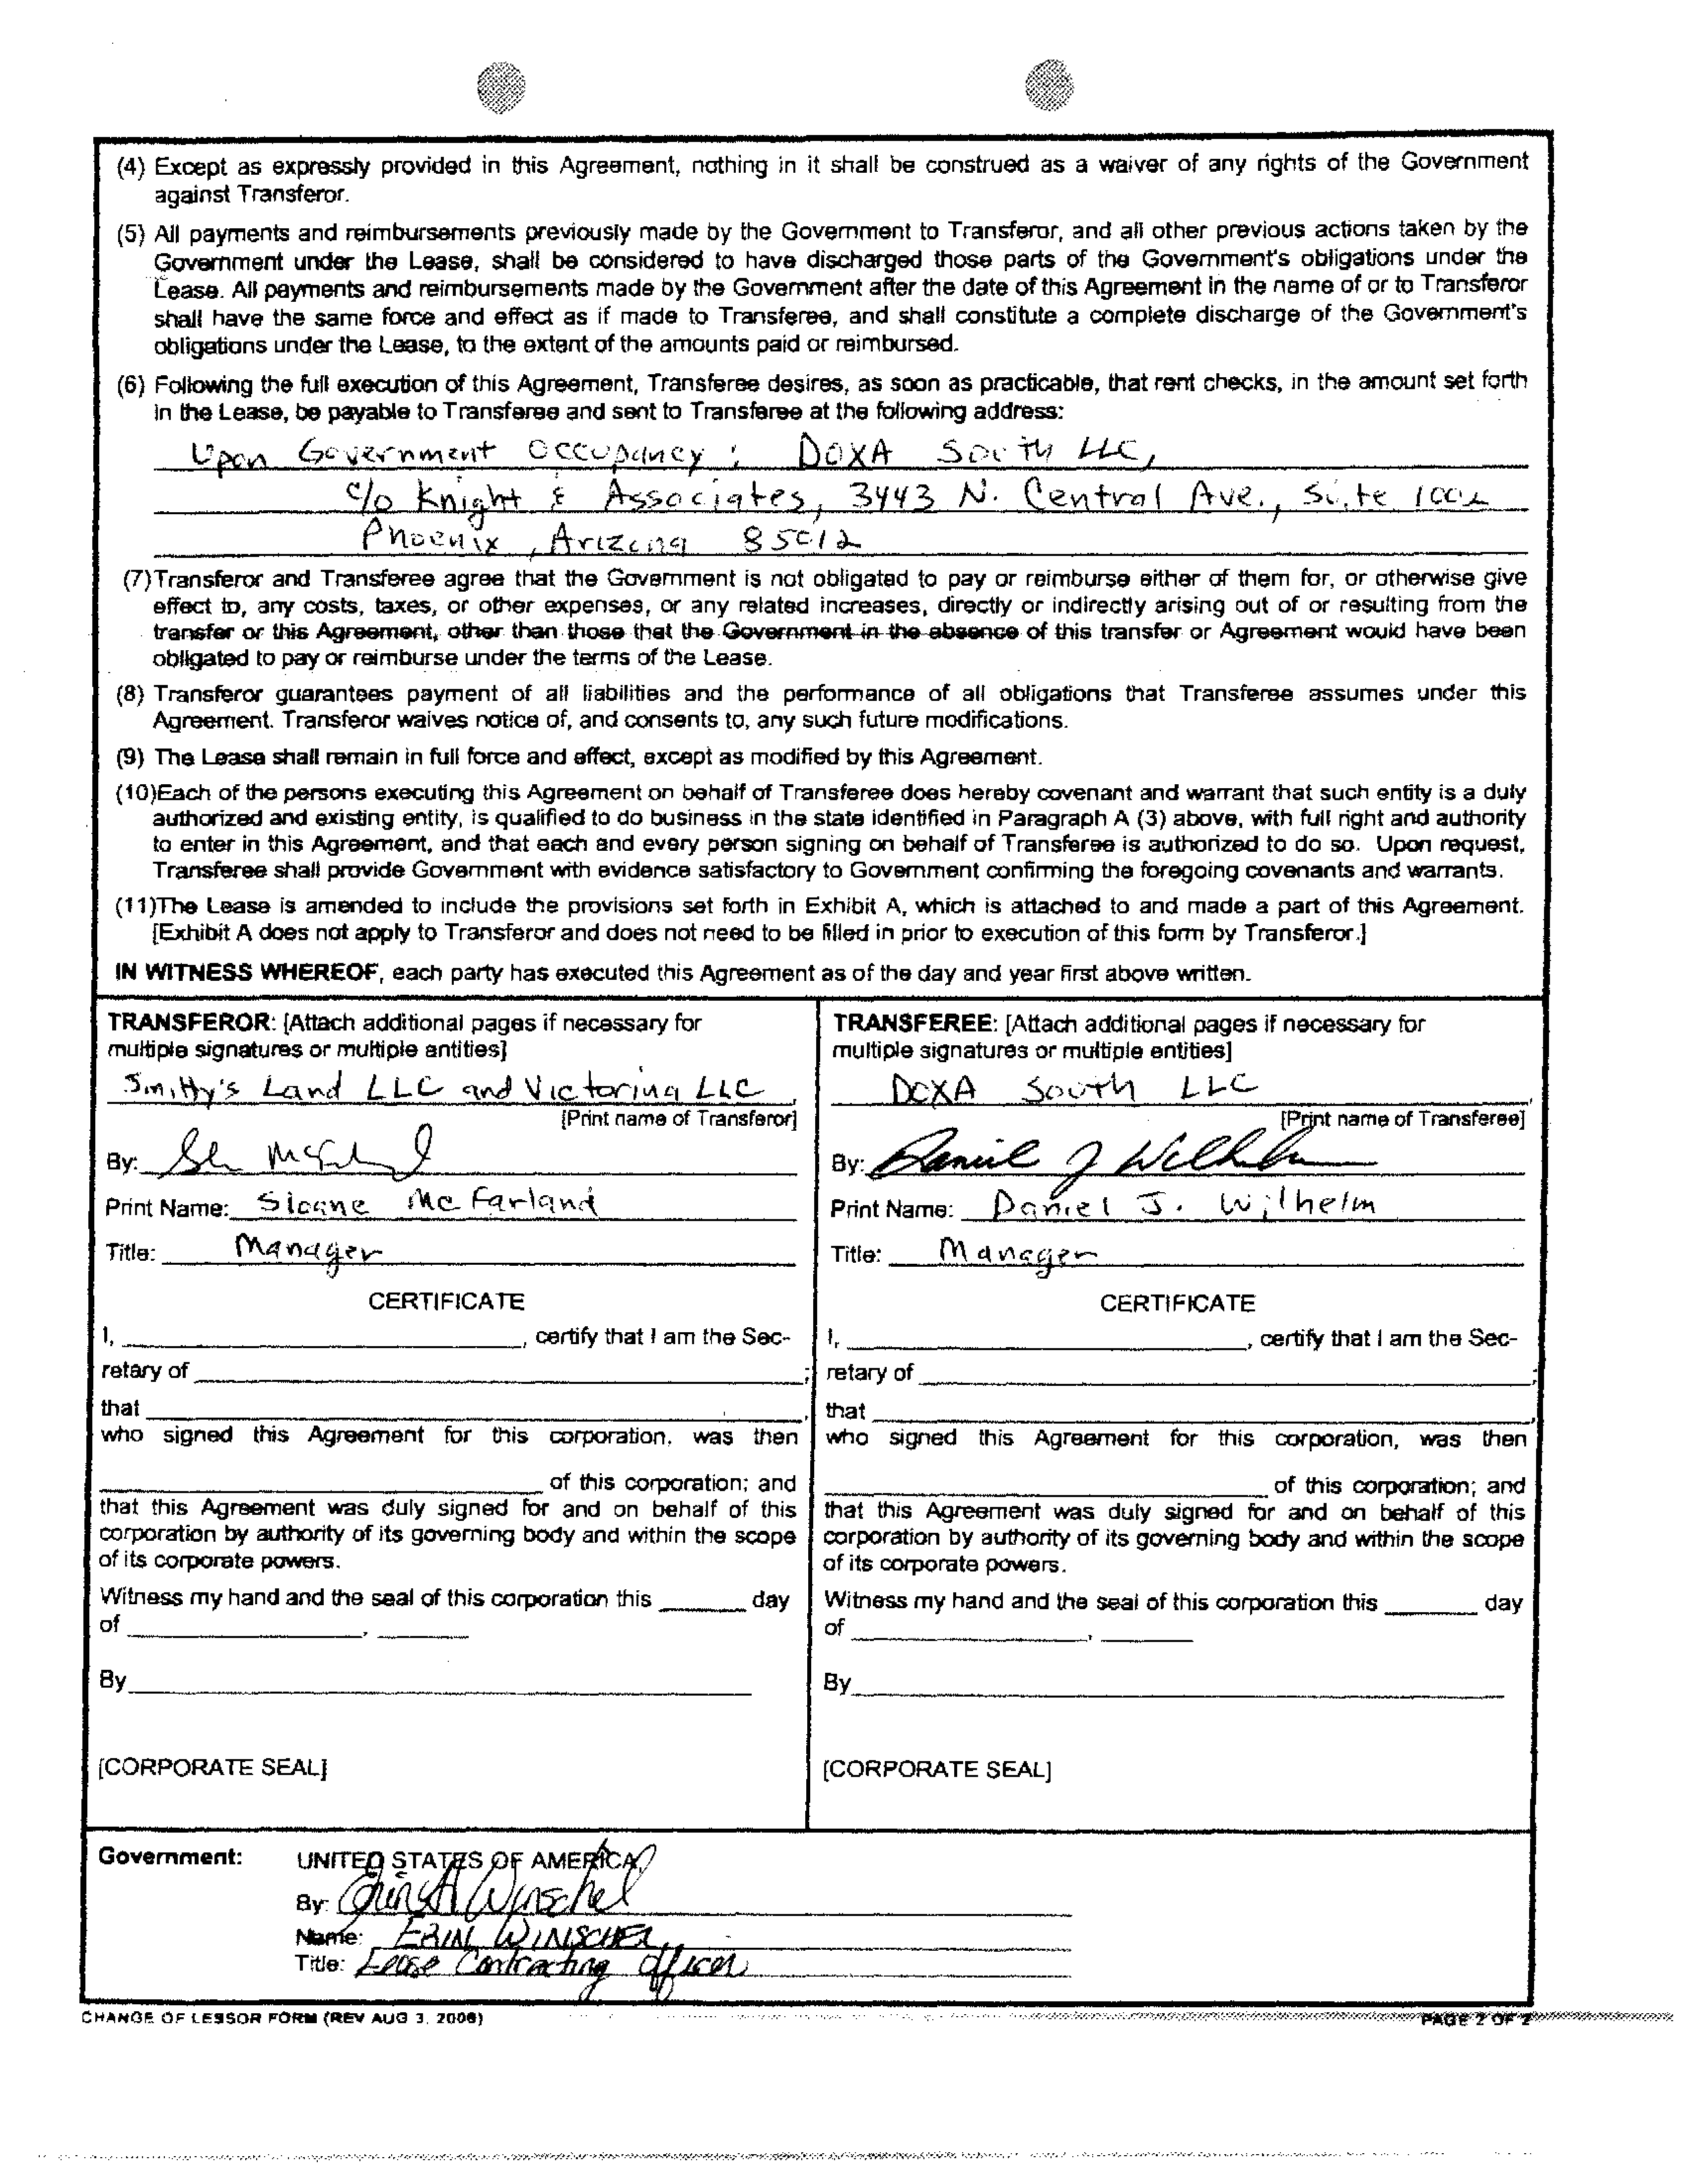 (4) Except as expressly provided in this Agreement, nothing in it shall be construed as a waiver of any rights of the Government
against Transferor.
(5) All payments and reimbursements previously made by the Government to Transferor, and all other previous actions taken by the
Government under the Lease, shall be considered to have discharged those parts of the Government's obligations under the
Lease. All payments and reimbursements made by the Government after the date of this Agreement in the name of or to Transferor
shall have the same force and effect as if made to Transferee, and shall constitute a complete discharge of the Government's
obligations under the Lease, to the extent of the amounts paid or reimbursed.
(6) Following the full execution of this Agreement, Transferee desires, as soon as practicable, that rent checks, in the amount set forth
in the Lease, be payable to Transferee and sent to Transferee at the following address:
Upon Government Occupancy: DOXA South LLC,
c/o Knight & Associates, 3443 N. Central Ave., Suite
Phoenix, Arizona 85012
(7) Transferor and Transferee agree that the Government is not obligated to pay or reimburse either of them for, or otherwise give
effect to, any costs, taxes, or other expenses, or any related increases, directly or indirectly arising out of or resulting from the
transfer or this Agreement, other than those that the Government in the absence of this transfer or Agreement would have been
obligated to pay or reimburse under the terms of the Lease.
(8) Transferor guarantees payment of all liabilities and the performance of all obligations that Transferee assumes under this
Agreement. Transferor waives notice of, and consents to, any such future modifications.
(9) The Lease shall remain in full force and effect, except as modified by this Agreement.
(10)Each of the persons executing this Agreement on behalf of Transferee does hereby covenant and warrant that such entity is a duly
authorized and existing entity, is qualified to do business in the state identified in Paragraph A (3) above, with full right and authority
to enter in this Agreement, and that each and every person signing on behalf of Transferee is authorized to do so. Upon request,
Transferee shall provide Government with evidence satisfactory to Government confirming the foregoing covenants and warrants.
(11)The Lease is amended to include the provisions set forth in Exhibit A, which is attached to and made a part of this Agreement.
[Exhibit A does not apply to Transferor and does not need to be filled in prior to execution of this form by Transferor.]
IN WITNESS WHEREOF, each party has executed this Agreement as of the day and year first above written.
TRANSFEROR: [Attach additional pages if necessary for
multiple signatures or multiple entities]
Smitty's Land LLC and Victorina LLC
[Print name of Transferor]
By:
Print Name: Sloane McFarland
Title: Manager
CERTIFICATE
I, ______, certify that I am the Sec-
retary of ______;
that ______,
who signed this Agreement for this corporation, was then
______ of this corporation; and
that this Agreement was duly signed for and on behalf of this
corporation by authority of its governing body and within the scope
of its corporate powers.
Witness my hand and the seal of this corporation this ______ day
of ______, ______
By ______
[CORPORATE SEAL]
TRANSFEREE: [Attach additional pages if necessary for
multiple signatures or multiple entities]
DOXA South LLC
[Print name of Transferee]
By: Daniel J Wilhelm
Print Name: Daniel J. Wilhelm
Title: Manager
CERTIFICATE
I, ______, certify that I am the Sec-
retary of ______;
that ______,
who signed this Agreement for this corporation, was then
______ of this corporation; and
that this Agreement was duly signed for and on behalf of this
corporation by authority of its governing body and within the scope
of its corporate powers.
Witness my hand and the seal of this corporation this ______ day
of ______, ______
By ______
[CORPORATE SEAL]
Government: UNITED STATES OF AMERICA,
By: Erin A Winschel
Name: ERIN WINSCHEL
Title: Lease Contracting Officer
CHANGE OF LESSOR FORM (REV AUG 3, 2006)
PAGE 2 OF 2